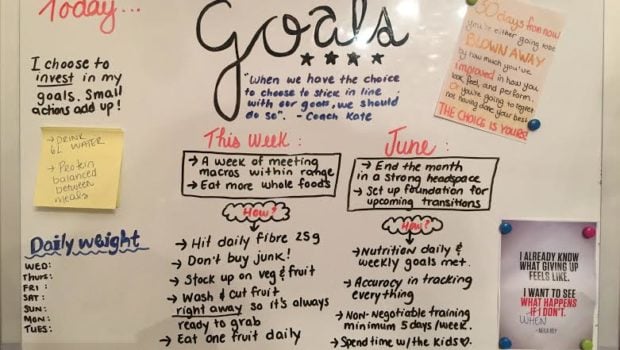 Today...
I choose to
invest in my
goals. Small
actions add up!
→ DRINK
6L WATER
→ Protein
balanced
between
meals
Daily weight
WED:
THURS:
FRI:
SAT:
SUN:
MON:
TUES:
goals
"When we have the choice
to choose to stick in line
with our goals, we should
do so". - Coach Kate
This Week:
→ A week of meeting
macros within range
→ Eat more whole foods
How?
→ Hit daily fibre 25g
→ Don't buy junk!
→ Stock up on veg & fruit
→ Wash & cut fruit
right away so it's always
ready to grab
→ Eat one fruit daily
June:
→ End the month
in a strong headspace
→ Set up foundation for
upcoming transitions
How?
→ Nutrition daily &
weekly goals met.
→ Accuracy in tracking
everything
→ Non-Negotiable training
minimum 5 days/week.
→ Spend time w/the kids♡.
30 days from now
you're either going to be
BLOWN AWAY
by how much you've
improved in how you
look, feel, and perform.
Or you're going to regret
not having done your best.
THE CHOICE IS YOURS!
I ALREADY KNOW
WHAT GIVING UP
FEELS LIKE.
I WANT TO SEE
WHAT HAPPENS
IF I DON'T.
WHEN